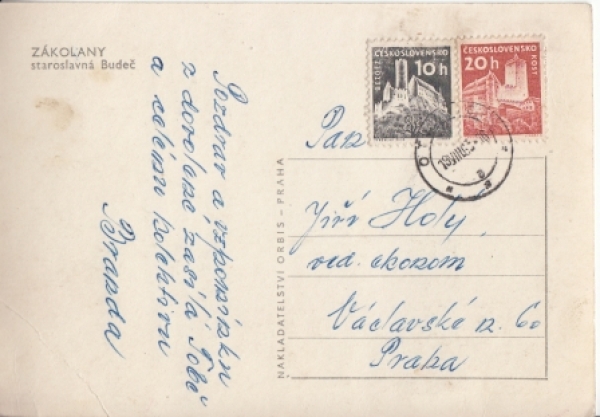 ZÁKOLANY
staroslavná Budeč
Pozdrav a vzpomínku
z dovolené zasílá Tobě
a celému kolektivu
Branda
NAKLADATELSTVÍ ORBIS – PRAHA
BEZDĚZ
ČESKOSLOVENSKO
10 h
ČESKOSLOVENSKO
20 h
KOST
Pan
Jiří Holy,
ved. ekonom
Václavské n. 60
Praha